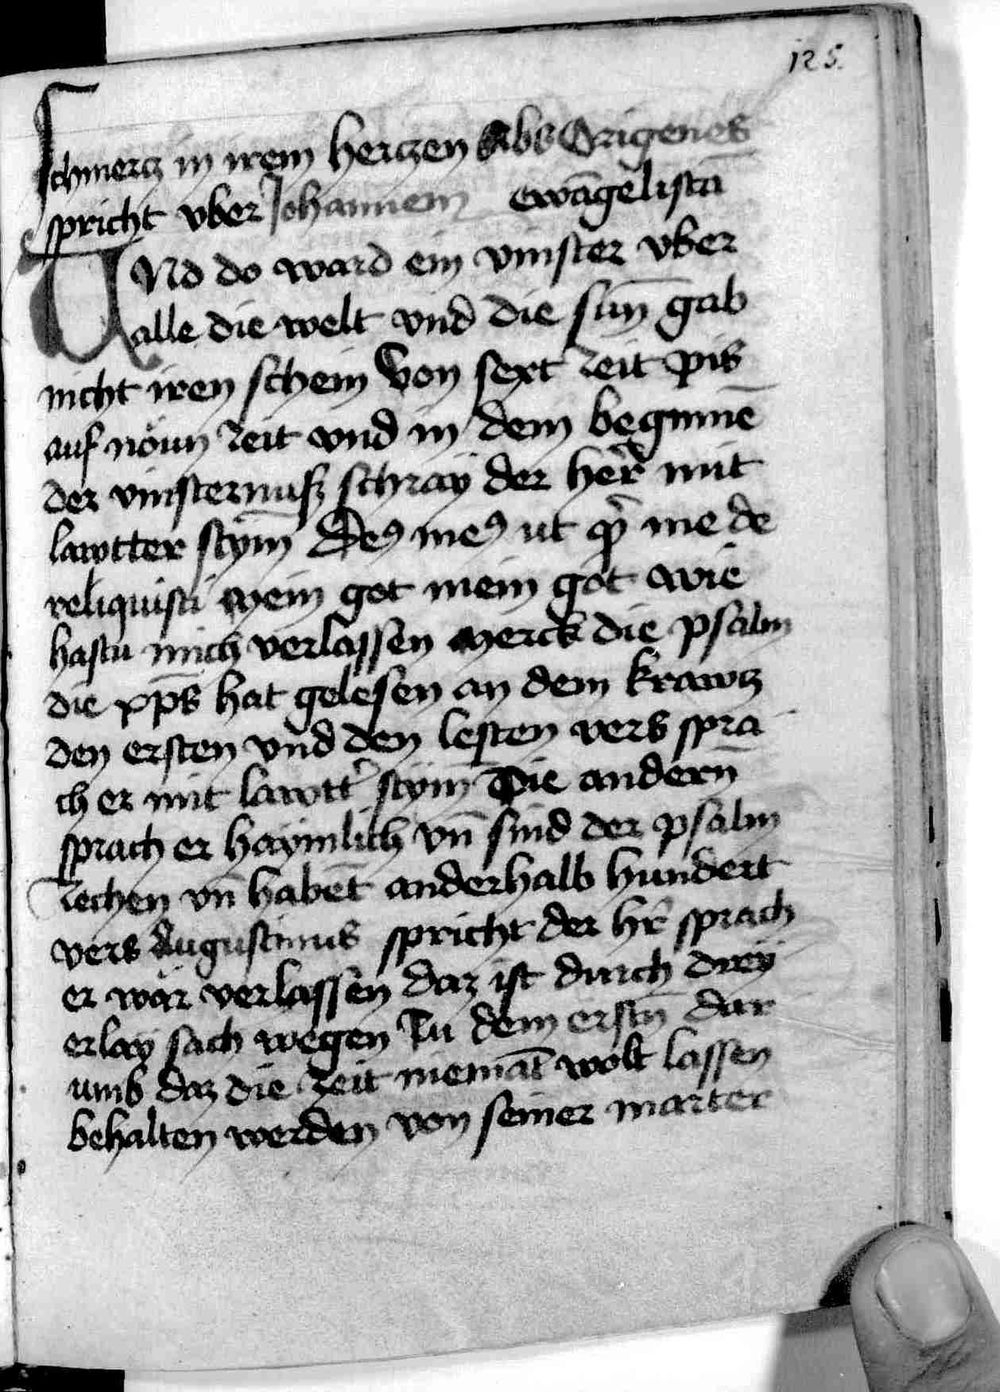 125.
Schmercz in irem herczen Als Origenes
spricht vber Johannem ewāgelistā
VNd do ward ein vinster vber
alle die welt vnd die sūn gab
nicht iren schein Von sext zeit pis
auf nöun zeit vnd in dem beginnē
der vinsternuss schray der her̄ mit
lawtter stym̄ Deꝰ meꝰ ut qͥ me de
reliquisti Mein got mein got wie
hastu mich verlassen Merck die psalm
die xp̄s hat gelesen an dem krawcz
den ersten vnd den lesten vers spra
ch er mit lawtt' stym̄ Die andern̄
sprach er haymlich vn̄ sind der psalm
zechen vn̄ habēt anderhalb hundert
vers Augustinus spricht der hr̄ sprach
er wär verlassen daz ist durch drey
erlay sach wegen Zu dem erstn̄ dar
umb daz die zeit niemāt wolt lassen
behalten werden von seiner marter